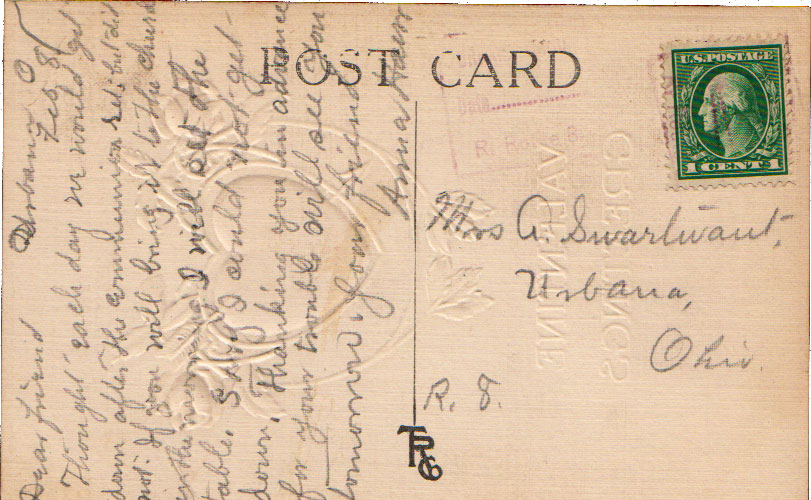 POST CARD
U.S. POSTAGE
1 CENTS 1
Urbana O
Feb. 8
Dear friend
Thought each day we would get
down after the communion set, but did
not. If you will bring it to the church
in the morning I will set the
table. Sorry I could not get
down, Thanking you in advance
for your trouble will see you
tomorrow. Your friend
Anna
Mrs A. Swartwout,
Urbana,
Ohio.
R. F.
TRG
R. Route 3
GREETINGS
VALENTINE